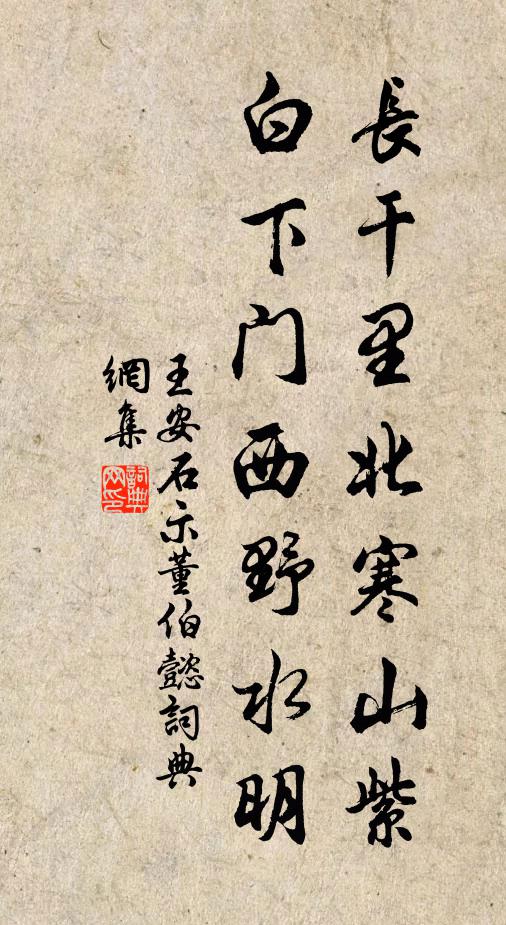 長干里北寒山紫
白下門西野水明
王安石示董伯懿詞典
網集
詞典網印